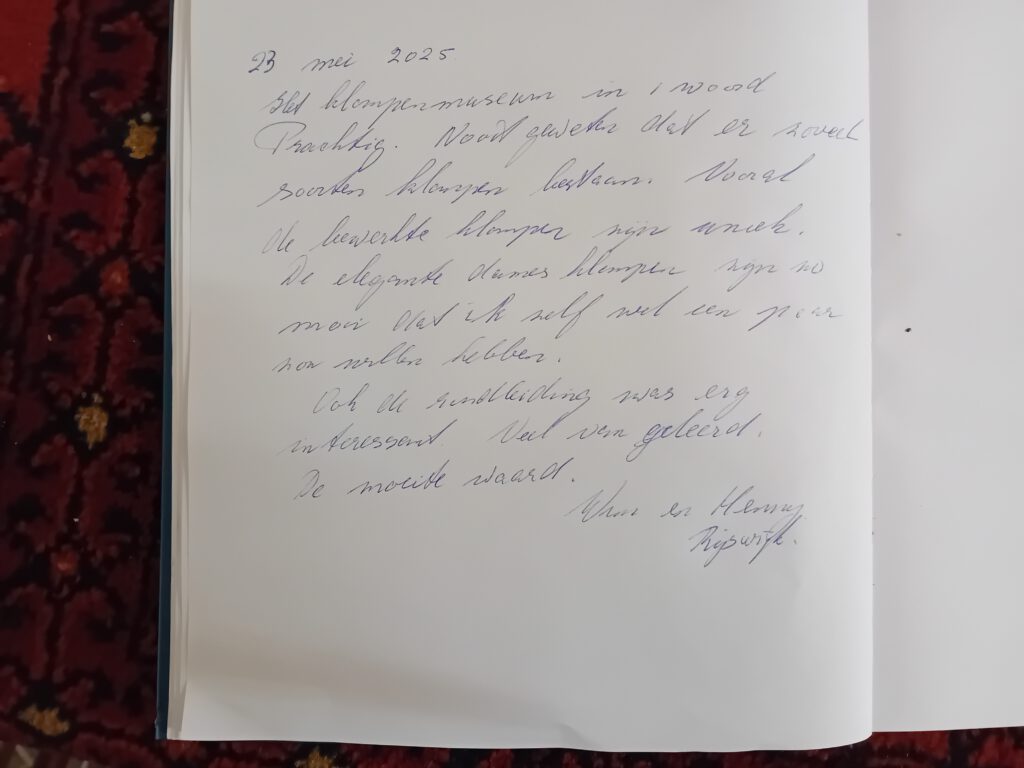 23 mei 2025.
Het klompenmuseum in 1 woord
Prachtig. Nooit geweten dat er zoveel
soorten klompen bestaan. Vooral
de bewerkte klompen zijn uniek.
De elegante dames klompen zijn zo
mooi dat ik zelf wel een paar
zou willen hebben.
Ook de rondleiding was erg
interessant. Veel van geleerd.
De moeite waard.
en Henny
Rijswijk.